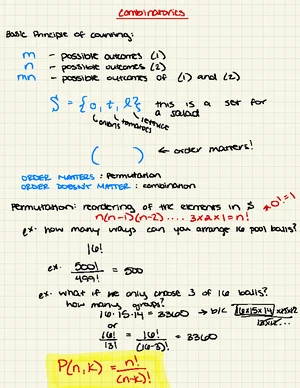 Combinatorics
Basic Principle of counting:
m - possible outcomes (1)
n - possible outcomes (2)
mn - possible outcomes of (1) and (2)
S = {o, t, l} this is a set for a salad
onions tomatoes lettuce
( ) ← order matters!
ORDER MATTERS: permutation
ORDER DOESN'T MATTER: combination
Permutation: reordering of the elements in S *0! = 1
n(n-1)(n-2) .... 3x2x1 = n!
ex. how many ways can you arrange 16 pool balls?
16!
ex. 500!/499! = 500
ex. what if we only choose 3 of 16 balls?
how many groups?
16·15·14 = 3360 → b/c 16x15x14x13x12
13x12...
or
16!/13! = 16!/(16-3)! = 3360
P(n,k) = n!/(n-k)!